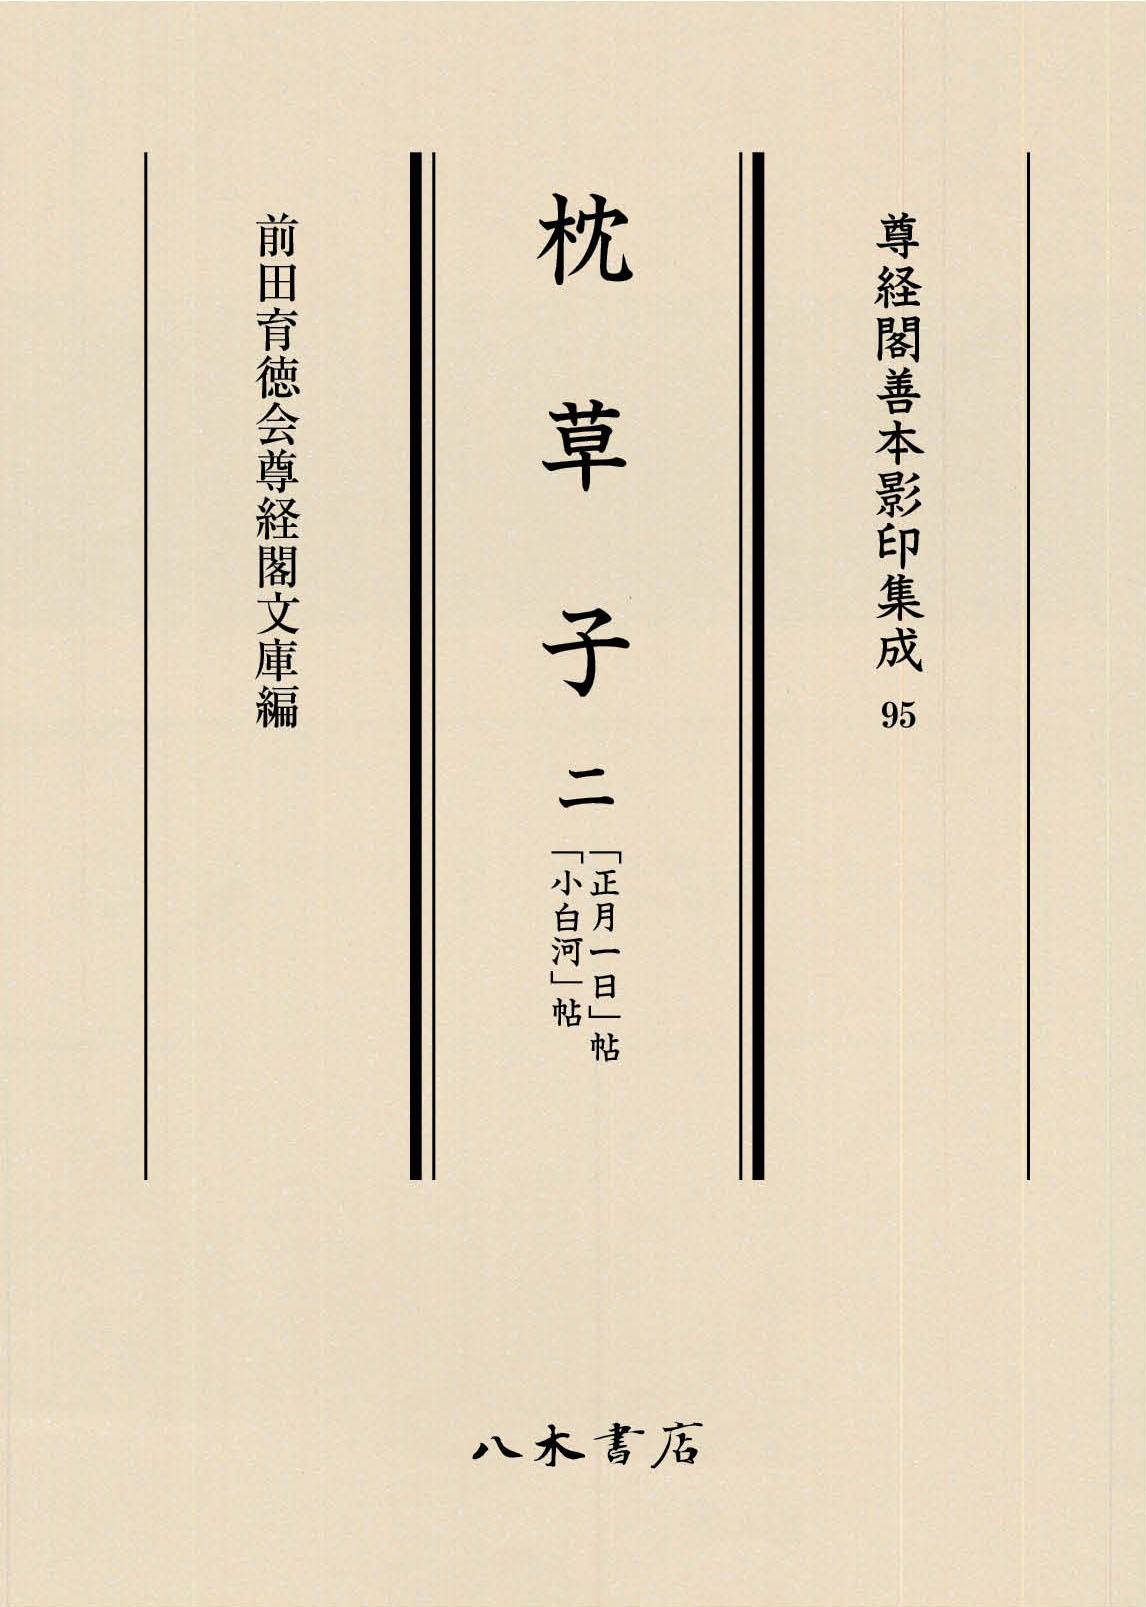 尊経閣善本影印集成 95
枕草子 二
「正月一日」帖
「小白河」帖
前田育徳会尊経閣文庫編
八木書店